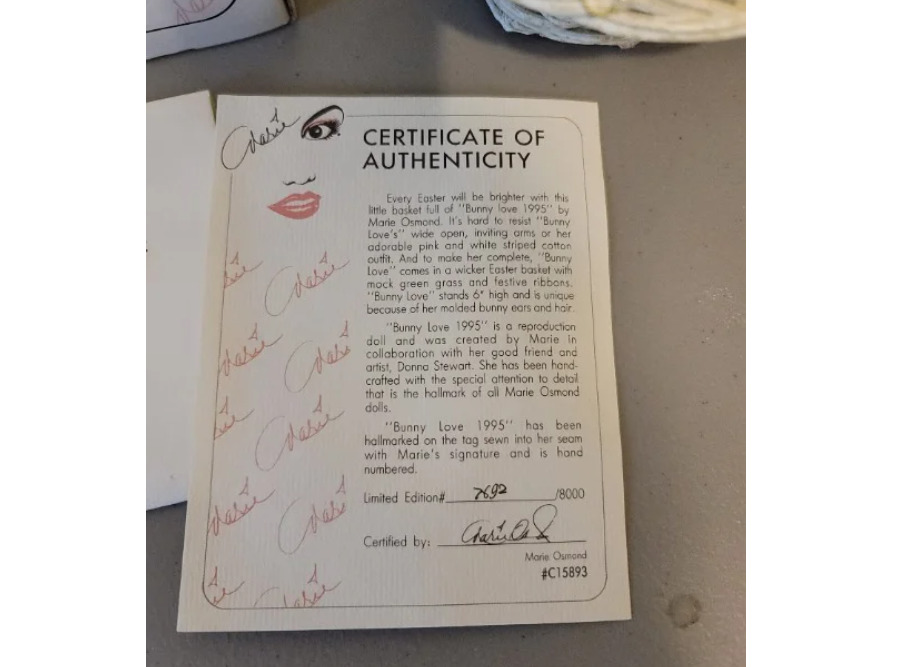 Marie
CERTIFICATE OF
AUTHENTICITY
Every Easter will be brighter with this
little basket full of "Bunny love 1995" by
Marie Osmond. It's hard to resist "Bunny
Love's" wide open, inviting arms or her
adorable pink and white striped cotton
outfit. And to make her complete, "Bunny
Love" comes in a wicker Easter basket with
mock green grass and festive ribbons.
"Bunny Love" stands 6" high and is unique
because of her molded bunny ears and hair.
"Bunny Love 1995" is a reproduction
doll and was created by Marie in
collaboration with her good friend and
artist, Donna Stewart. She has been hand-
crafted with the special attention to detail
that is the hallmark of all Marie Osmond
dolls.
"Bunny Love 1995" has been
hallmarked on the tag sewn into her seam
with Marie's signature and is hand
numbered.
Limited Edition# 7692 /8000
Certified by: Marie Osmond
Marie Osmond
#C15893
Marie
Marie
Marie
Marie
Marie
Marie
Marie